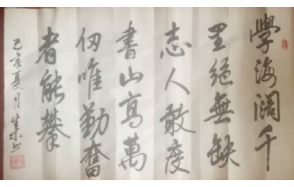 學海闊千
里絕無缺
志人敢度
書山高萬
仞唯勤奮
者能攀
己亥夏月